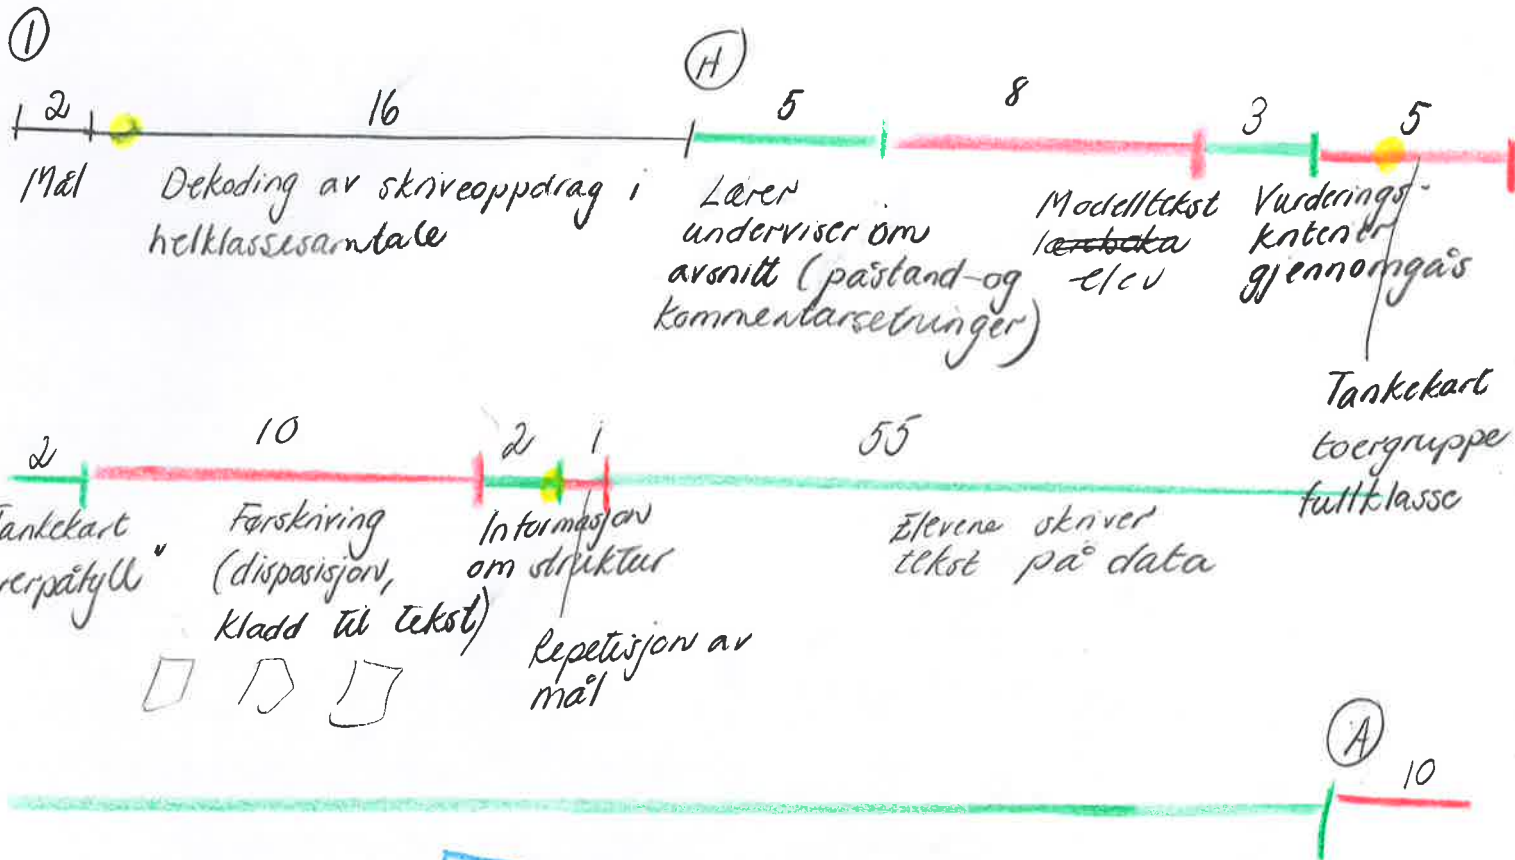 I
H
2
16
5
8
3
5
Mål
Dekoding av skriveoppdrag i
helklassesamtale
Lærer
underviser om
avsnitt (påstand-og
kommentarsetninger)
Modelltekst
læreboka
elev
Vurderings-
kriterier
gjennomgås
Tankekart
toergruppe
fullklasse
2
10
2
1
55
Tankekart
rerpåfyll"
Førskriving
(disposisjon,
kladd til tekst)
Informasjon
om struktur
Repetisjon av
mål
Elevene skriver
tekst på data
A
10